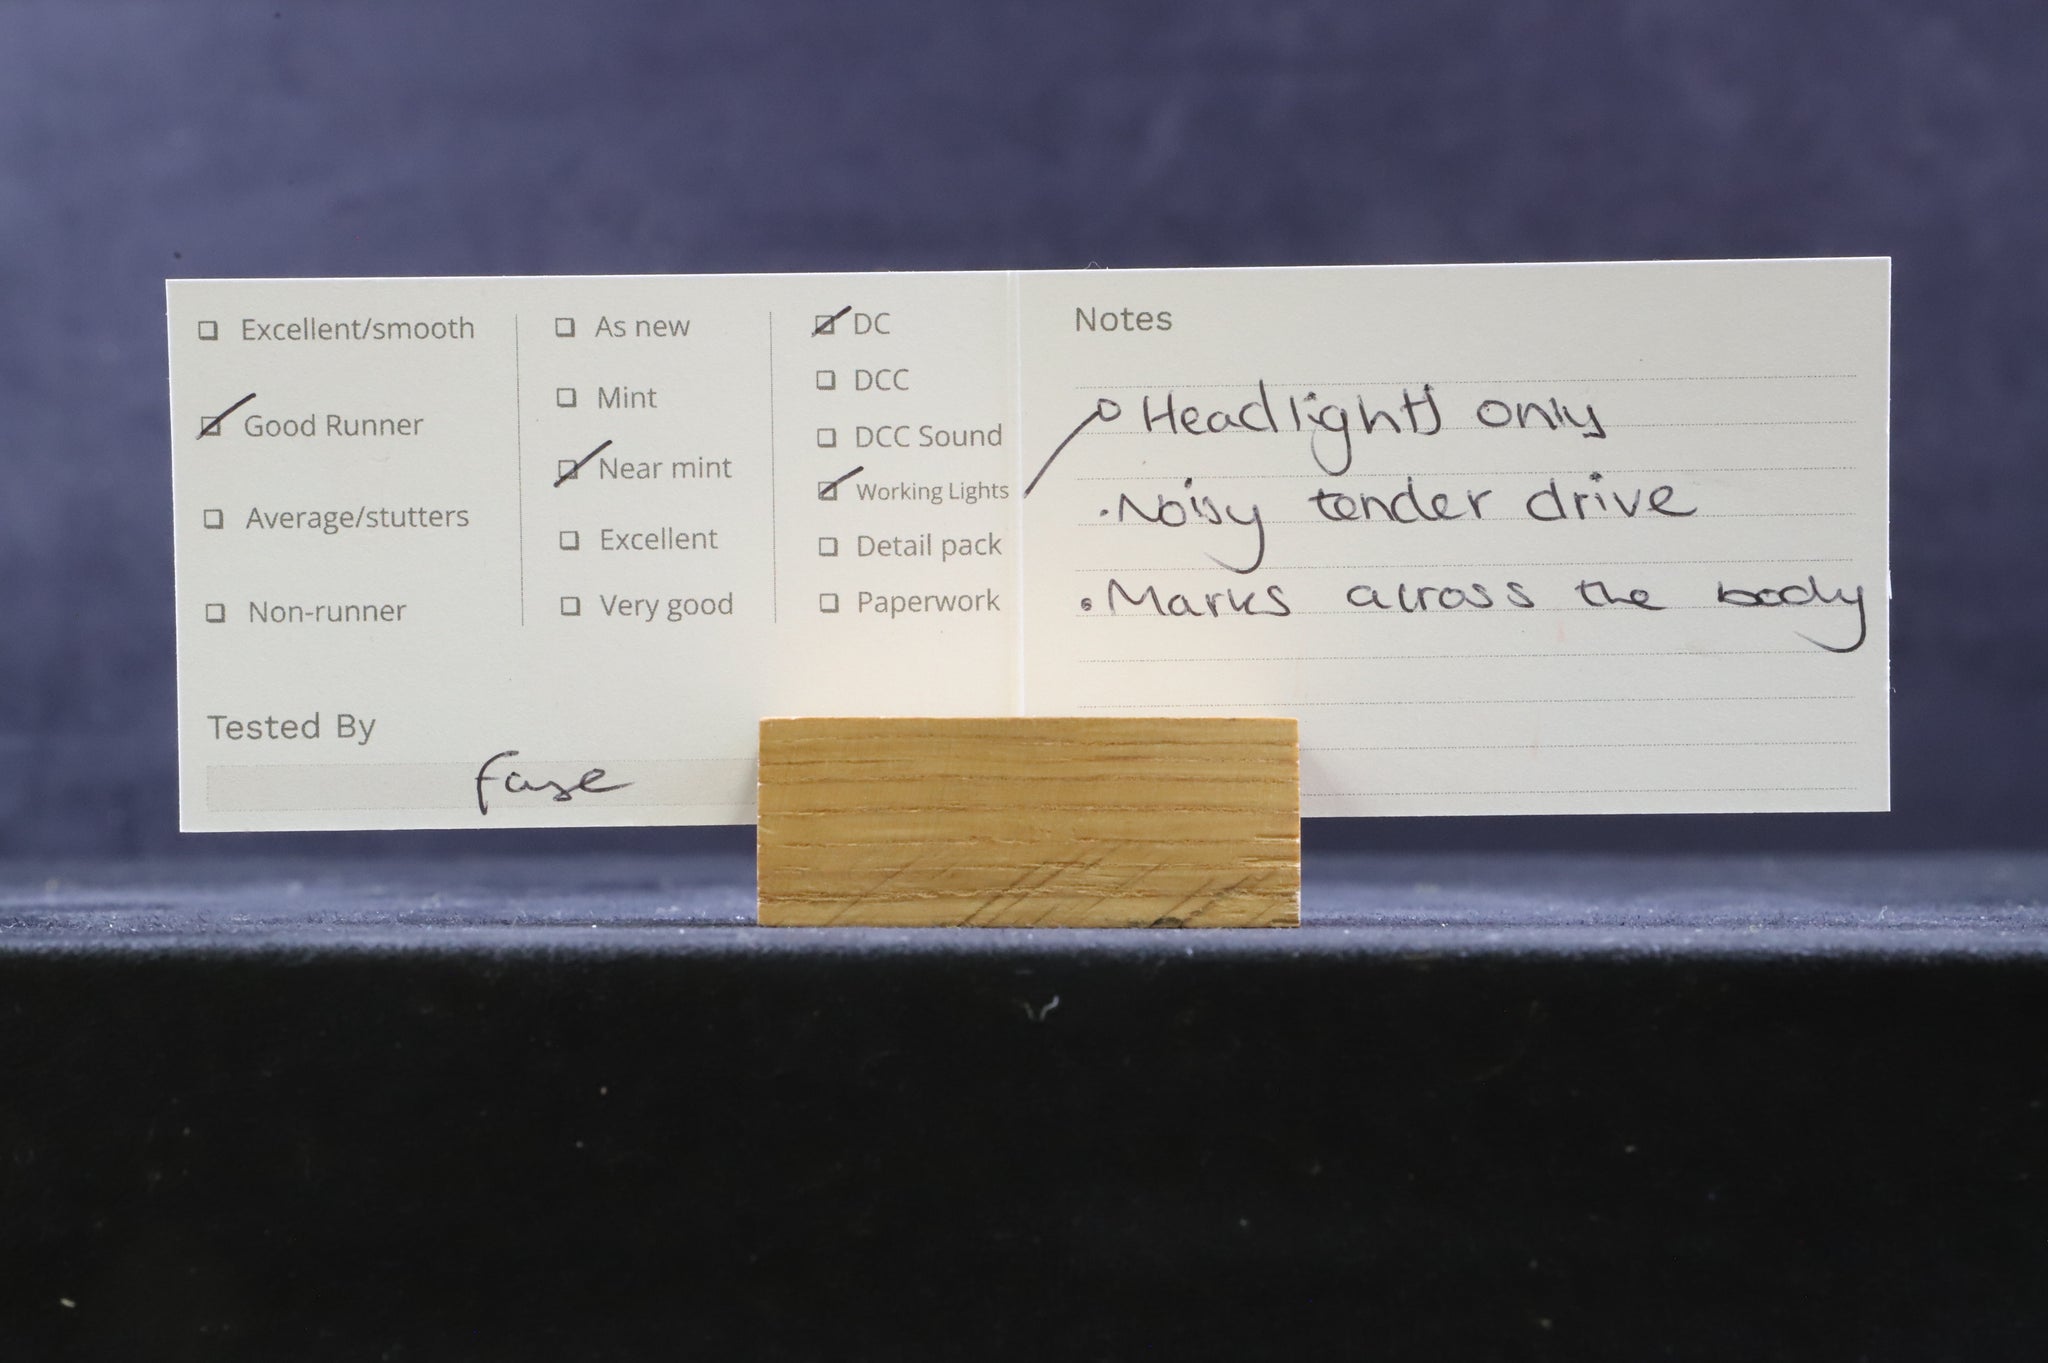 Excellent/smooth
Good Runner
Average/stutters
Non-runner
As new
Mint
Near mint
Excellent
Very good
DC
DCC
DCC Sound
Working Lights
Detail pack
Paperwork
Tested By
Notes
Headlights only
• Noisy tender drive
• Marks across the body